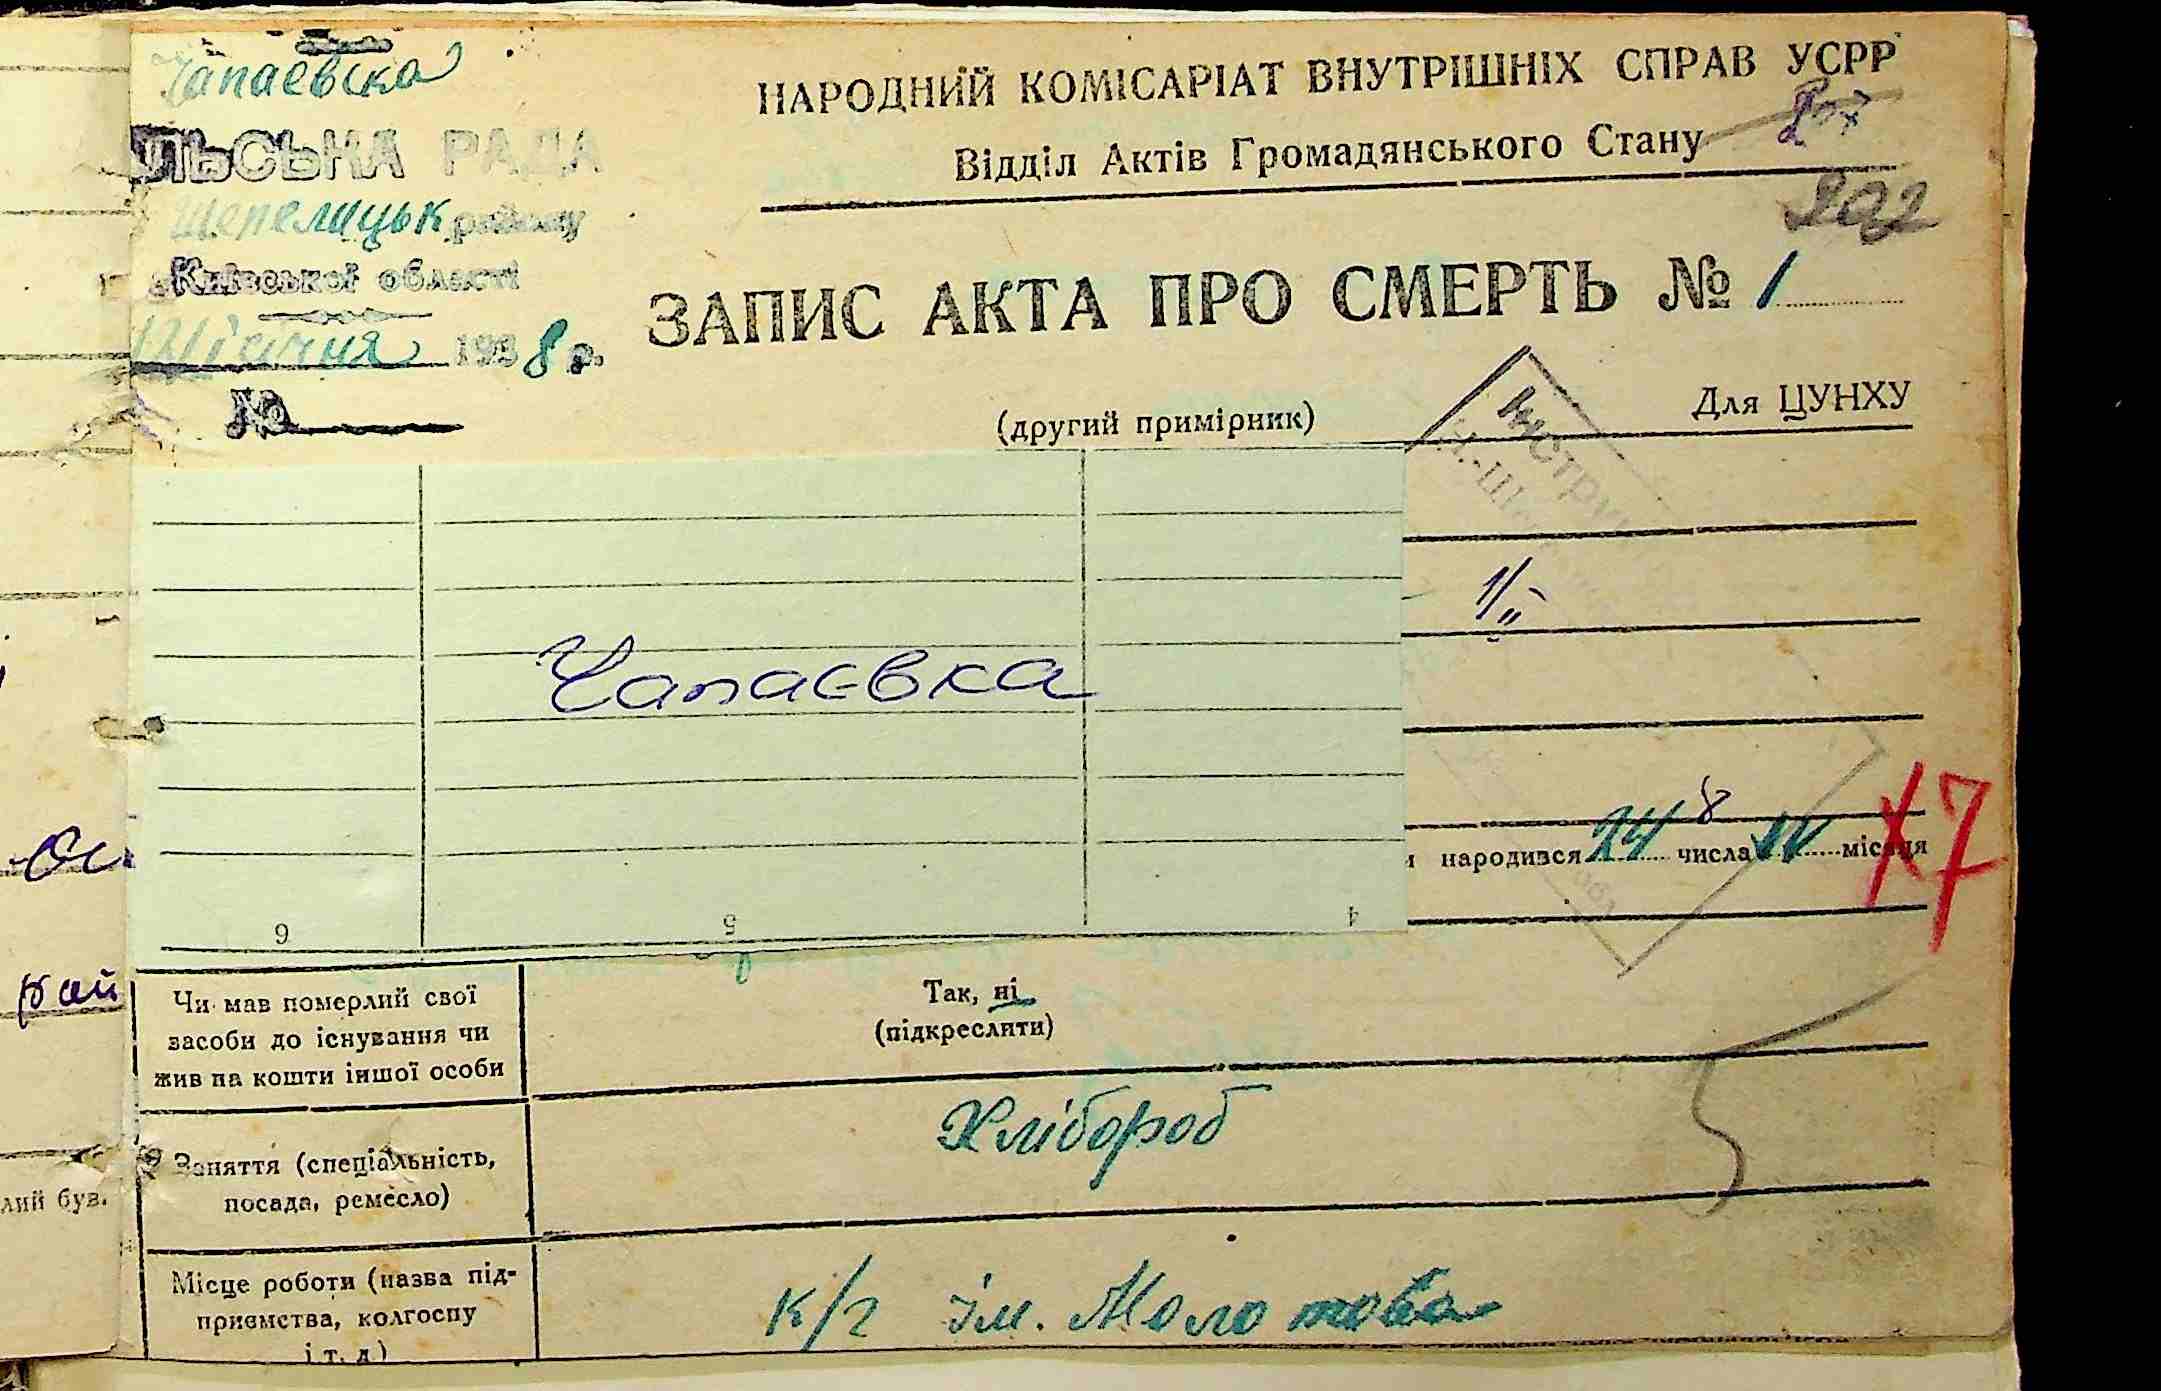 Чапаєвска
ЛЬСЬКА РАДА
Шепелицьк району
Київської області
січня 1938 р.
№
НАРОДНИЙ КОМІСАРІАТ ВНУТРІШНІХ СПРАВ УСРР
Відділ Актів Громадянського Стану
202
ЗАПИС АКТА ПРО СМЕРТЬ № 1
(другий примірник)
Для ЦУНХУ
Чапаєвка
народився 24 числа місяця
8
Х7
6 5 4
Чи мав померлий свої
засоби до існування чи
жив на кошти іншої особи
Так, ні
(підкреслити)
Заняття (спеціальність,
посада, ремесло)
Хлібороб
Місце роботи (назва під-
приємства, колгоспу
і т. д.)
к/г ім. Молотова
рай
лий був.